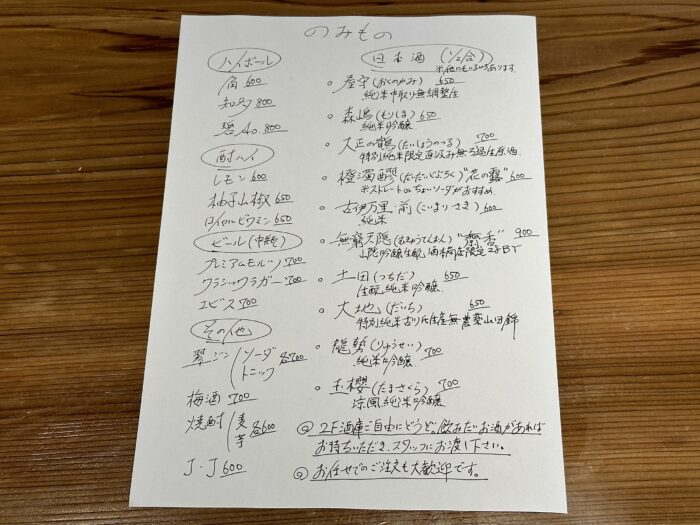 のみもの
ハイボール
角 600
知多 800
碧Ao 800
酎ハイ
レモン 600
柚子山椒 650
ロイヤルビタミン 650
ビール(中瓶)
プレミアムモルツ 700
クラシックラガー 700
エビス 700
その他
翠ジン ソーダ 各700
トニック
梅酒 700
焼酎 麦 各600
芋
J・J 600
日本酒 (1/2合)
※他にもいろいろあります
屋守(おくのかみ) 650
純米中取り無調整生
森嶋(もりしま) 650
純米吟醸
大正の鶴(たいしょうのつる) 700
特別純米限定直汲み無ろ過生原酒
橙濁醪(だいだいどぶろく)"花の露" 600
※ストレートorちょいソーダがおすすめ
古伊万里・前(こいまり さき) 600
純米
無窮天隠(むきゅうてんおん) 900
山陰吟醸生酛
土田(つちだ) 650
生酛純米吟醸
大地(だいち) 650
特別純米 無農薬山田錦
龍勢(りゅうせい) 700
純米吟醸
玉櫻(たまさくら) 700
純米吟醸
◎ 2F酒庫ご自由にどうぞ。飲みたいお酒があれば
お持ちいただき、スタッフにお渡し下さい。
◎ お任せでのご注文も大歓迎です。